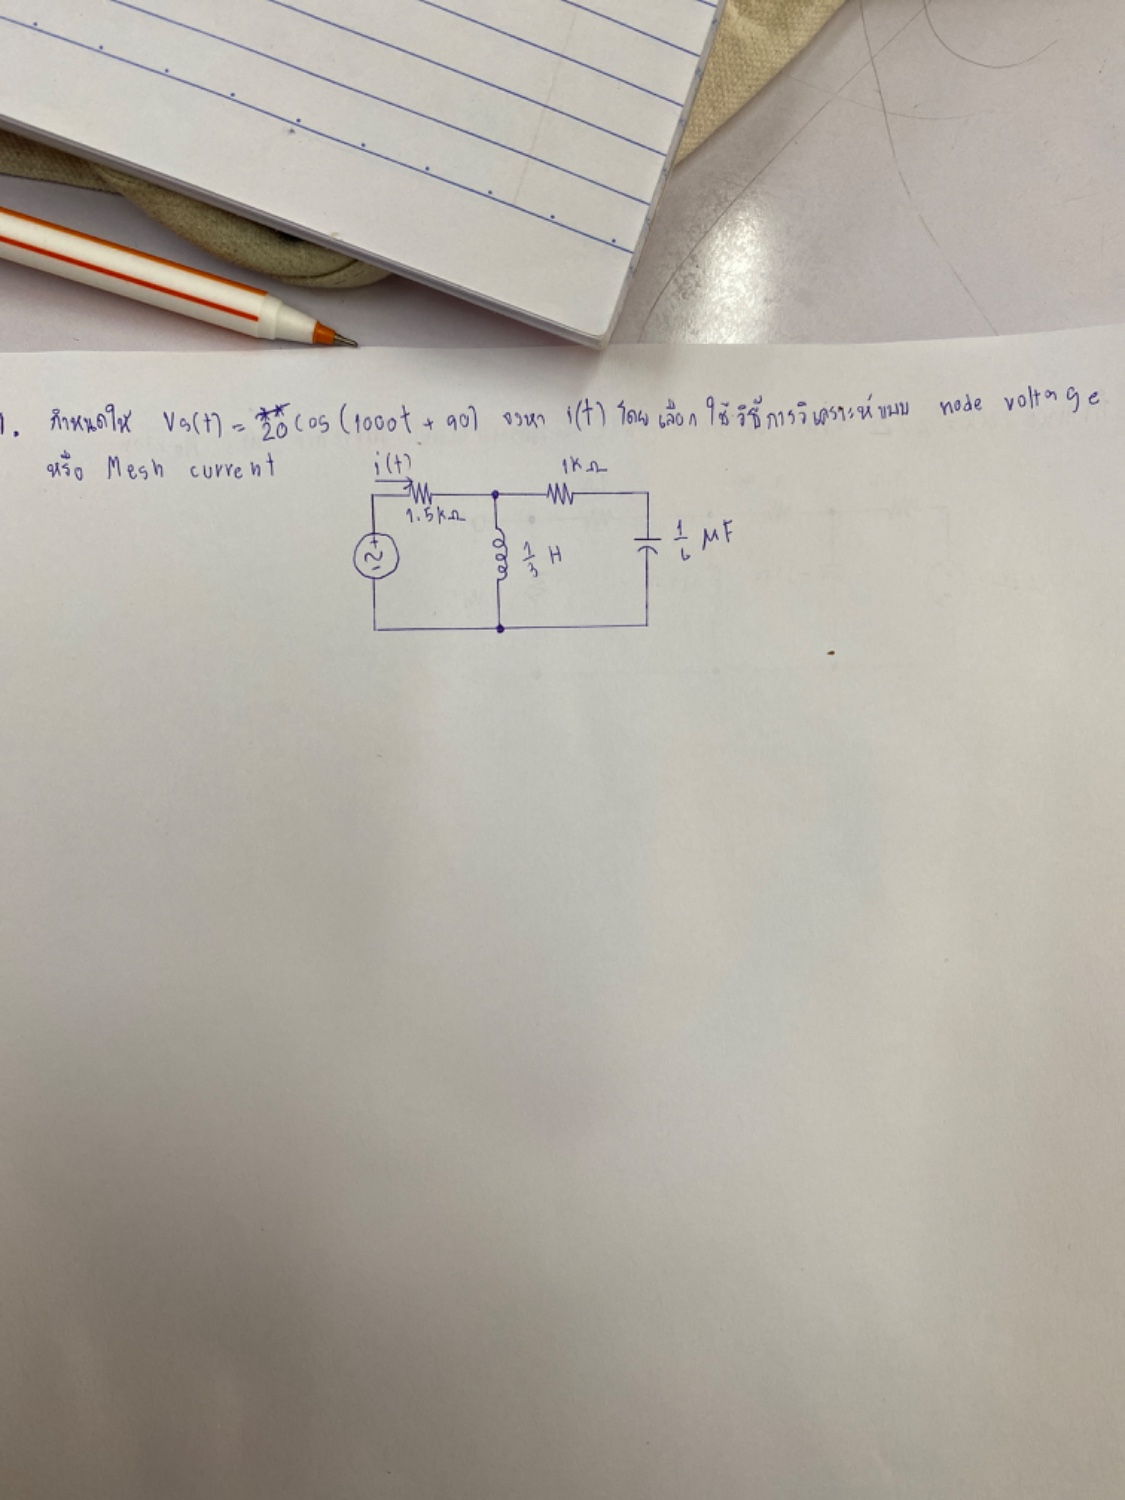 1. กำหนดให้ Vs(t) = 20 cos (1000t + 90) จงหา i(t) โดยเลือกใช้วิธีการวิเคราะห์แบบ node voltage
หรือ Mesh current
i(t)
1kΩ
1.5kΩ
+
~
-
1/3 H
1/6 MF